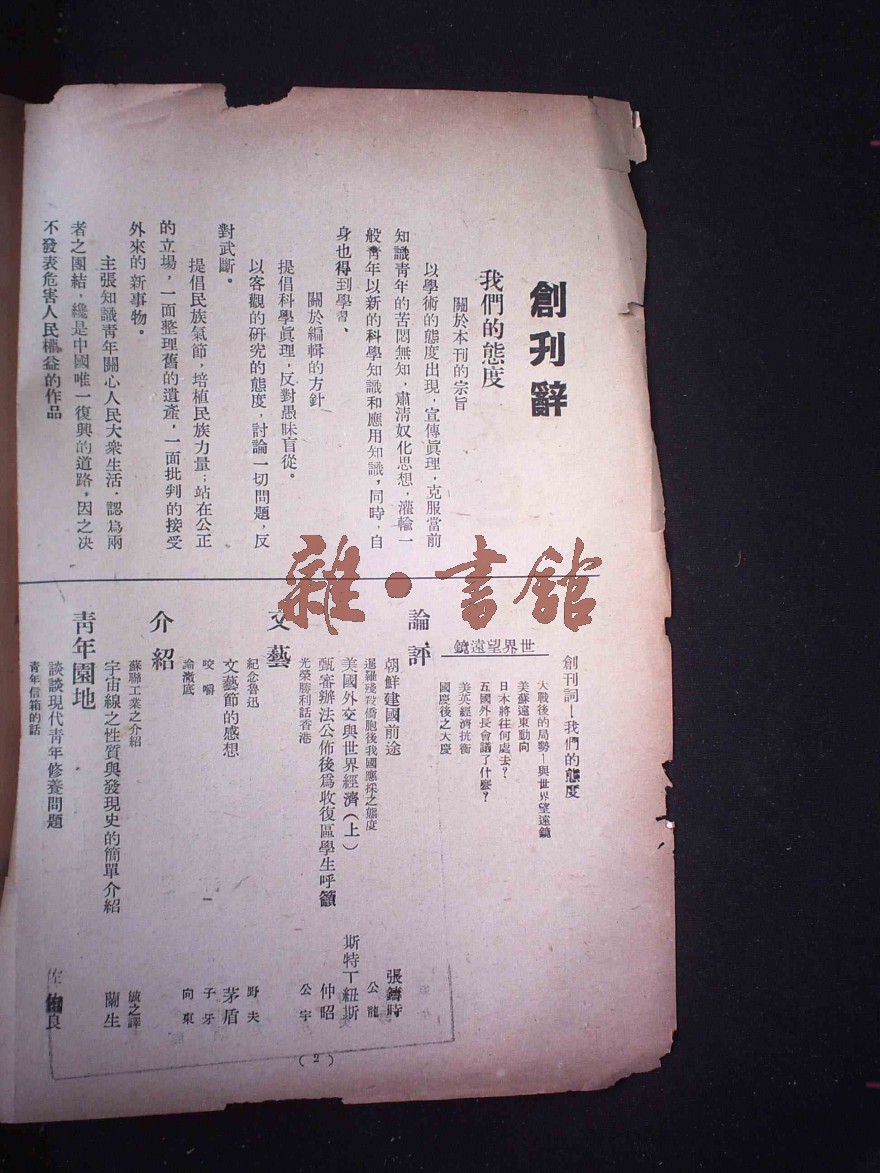 創刊辭
我們的態度
關於本刊的宗旨
以學術的態度出現，宣傳眞理，克服當前
知識靑年的苦悶無知，肅淸奴化思想，灌輸一
般靑年以新的科學知識和應用知識，同時，自
身也得到學習、
關於編輯的方針
提倡科學眞理，反對愚昧盲從。
以客觀的硏究的態度，討論一切問題，反
對武斷。
提倡民族氣節，培植民族力量；站在公正
的立場，一面整理舊的遺產，一面批判的接受
外來的新事物。
主張知識靑年關心人民大衆生活，認爲兩
者之團結，纔是中國唯一復興的道路，因之决
不發表危害人民權益的作品
創刊詞—我們的態度
世界望遠鏡
大戰後的局勢—與世界望遠鏡
美蘇遠東動向
日本將往何處去？
五國外長會議了什麼？
美英經濟抗衡
國慶後之大慶
論評
朝鮮建國前途 張鑄時
暹羅殘殺僑胞後我國應採之態度 公龍
美國外交與世界經濟（上） 斯特丁紐斯
甄審辦法公佈後爲收復區學生呼籲 仲昭
光榮勝利話香港 公宇
文藝
紀念魯迅 野夫
文藝節的感想 茅盾
咬嚼 子牙
論澈底 向東
介紹
蘇聯工業之介紹 敏之譯
宇宙線之性質與發現史的簡單介紹 蘭生
靑年園地
談談現代靑年修養問題 良
靑年信箱的話
（2）
雜·書館